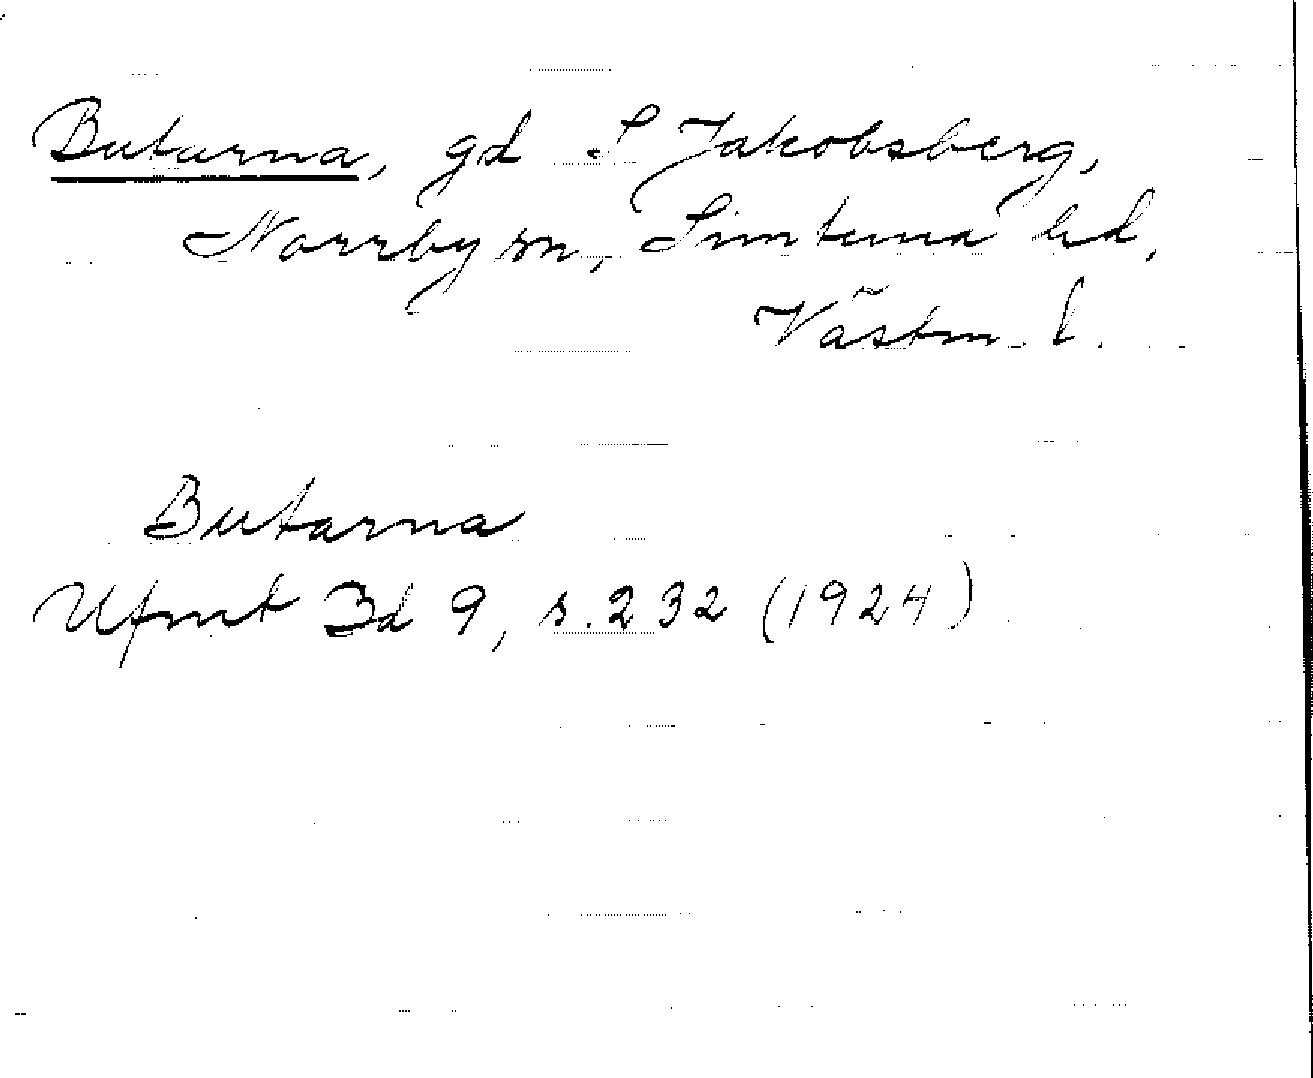 Butarna, gd S Jakobsberg,
Norrby sn, Simtuna hd,
Västm. l.
Butarna
Ufmt Bd 9, s. 232 (1924)